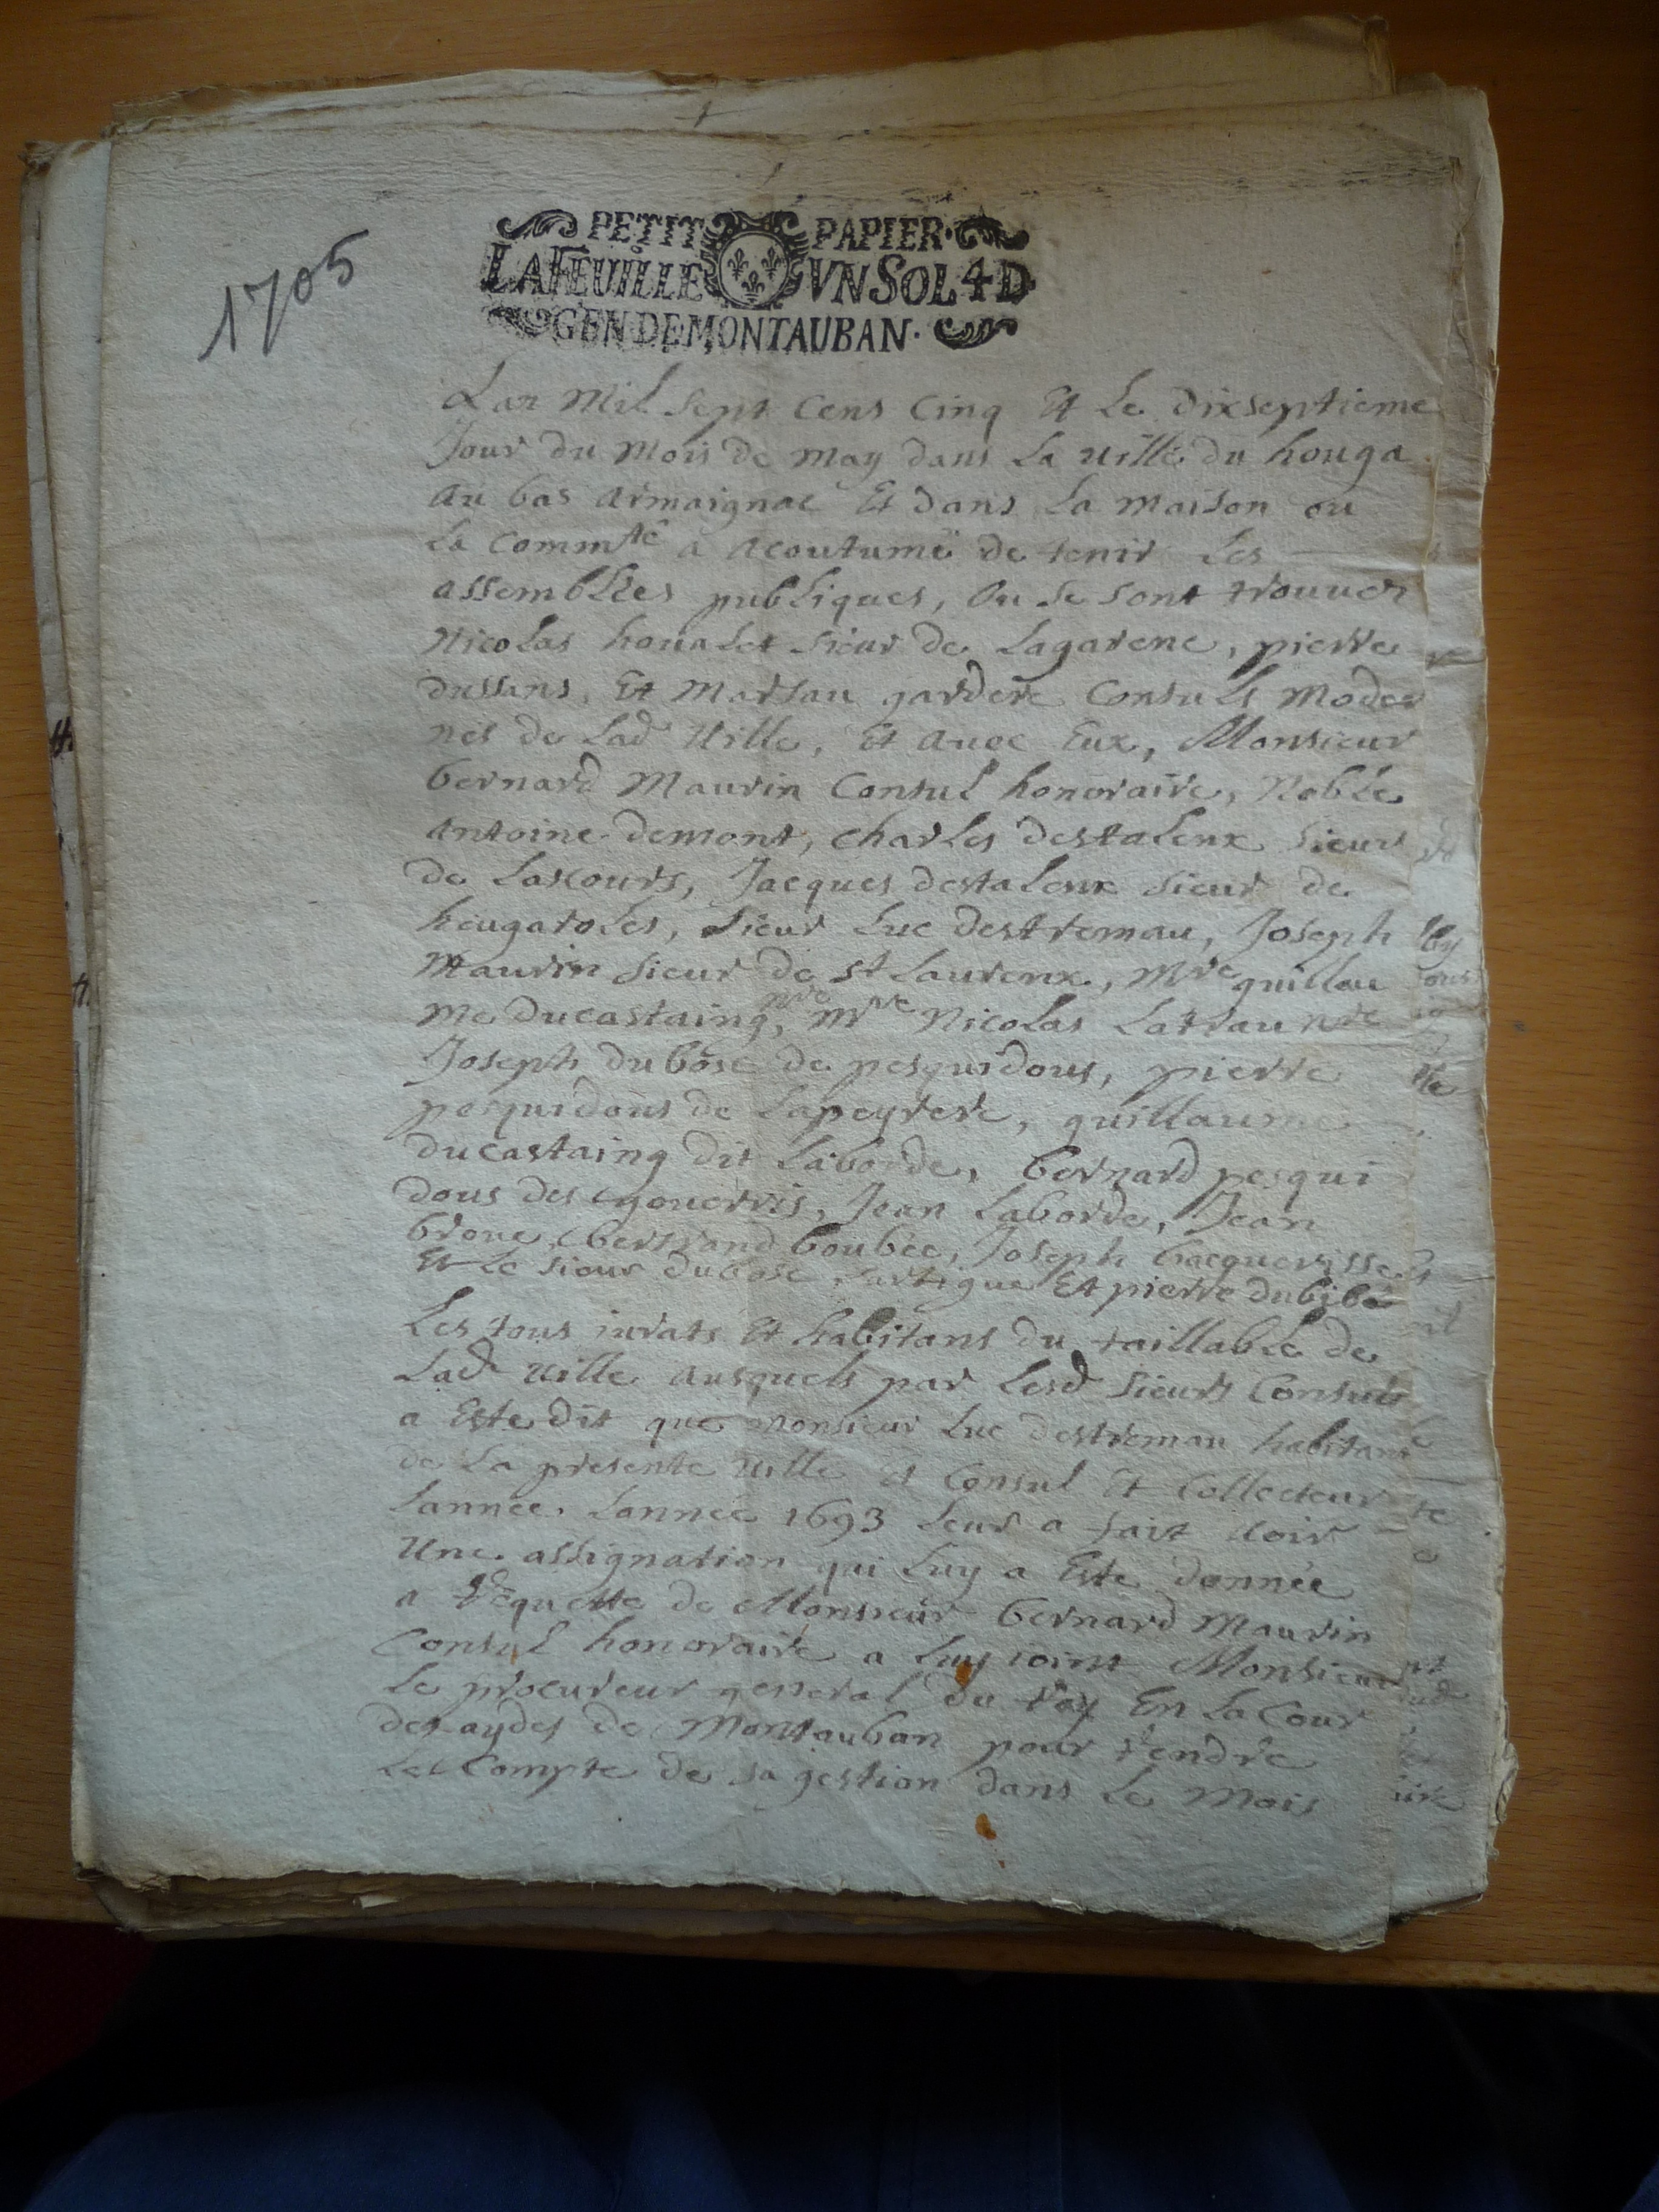 1705
PETIT PAPIER
LA FEUILLE UN SOL 4 D
GEN DE MONTAUBAN
Lan Mil Sept Cens Cinq Et Le dixseptieme
Jour du Mois de may dans La uille du houga
au bas armaignac Et dans La maison ou
La Commte a acoutumé de tenir Les
assemblées publiques, Ou se sont trouues
Nicolas houalet sieur de Lagarene, pierre
dussans, Et Marsau gardere Consuls Moder
nes de Lad Uille, Et auec Eux, Monsieur
bernard Maurin Consul honoraire, Noble
antoine demont, charles destalenx sieur
de Lascours, Jacques destalenx sieur de
heugaroles, sieur Luc destremau, Joseph
Maurin sieur de st Laurenx, Mre guillau
me ducastaing, nre Mre Nicolas Latrau nre
Joseph dubosc de pesquidous, pierre
pesquidous de Lapeyrere, guillaume
ducastaing dit Laborde, bernard pesqui
dous des Jean Laborde, Jean
broue, bertrand boubée, Joseph bacquerisse
Et Le sieur dubosc Lartigue Et pierre dubibé
Les tous iurats Et habitans du taillable de
Lad uille ausquels par Lesd sieurs Consuls
a Este dit que monsieur Luc destremau habitant
de La presente uille et Consul Et Collecteur
Lannee Lannee 1693 Leur a fait uoir
Une assignation qui Luy a Este donnée
a Requette de Monsieur bernard Maurin
Consul honoraire a Luy ioint Monsieur
Le procureur general du roy En La Cour
des aydes de Montauban pour rendre
Le Compte de sa gestion dans Le Mois